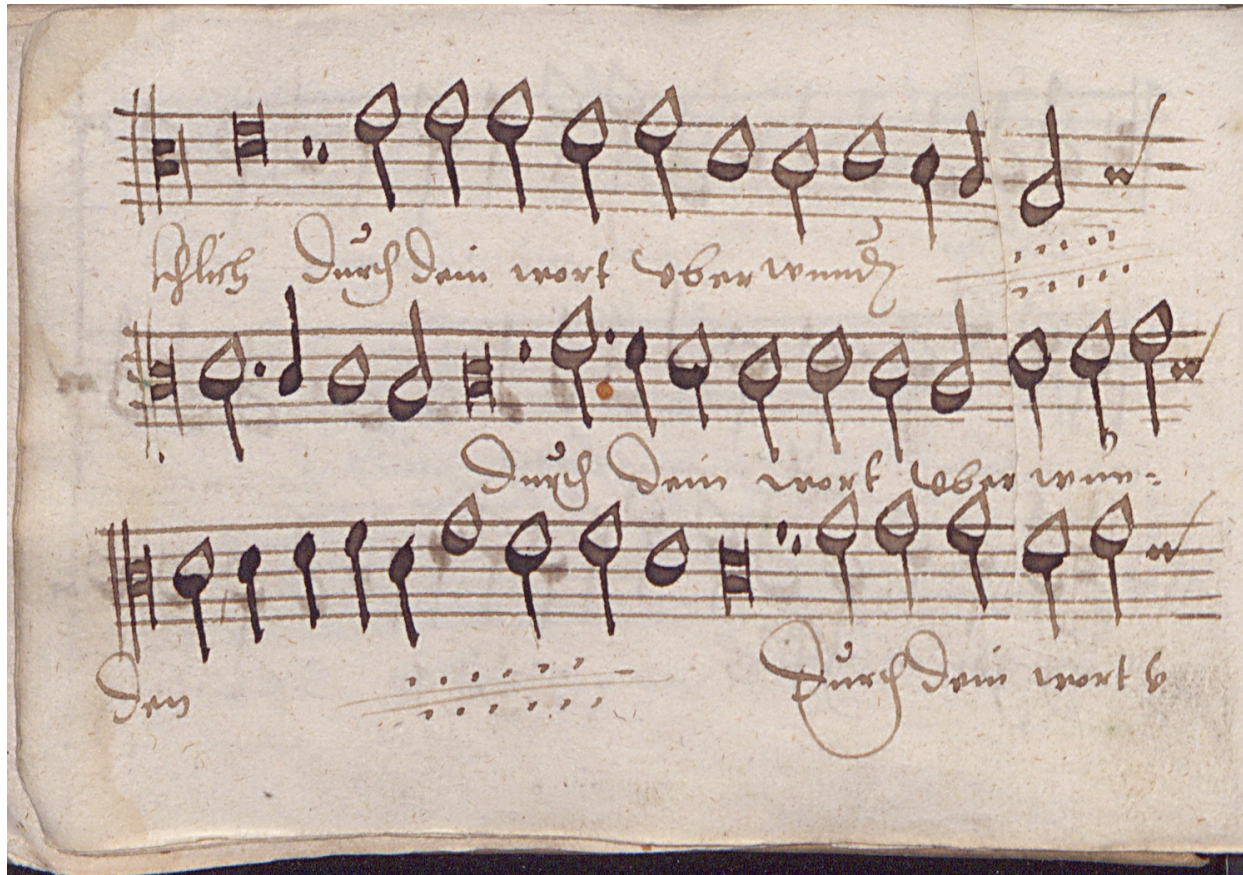 schlich durch dein wort vberwunden
durch dein wort vber wun-
den durch dein wort v